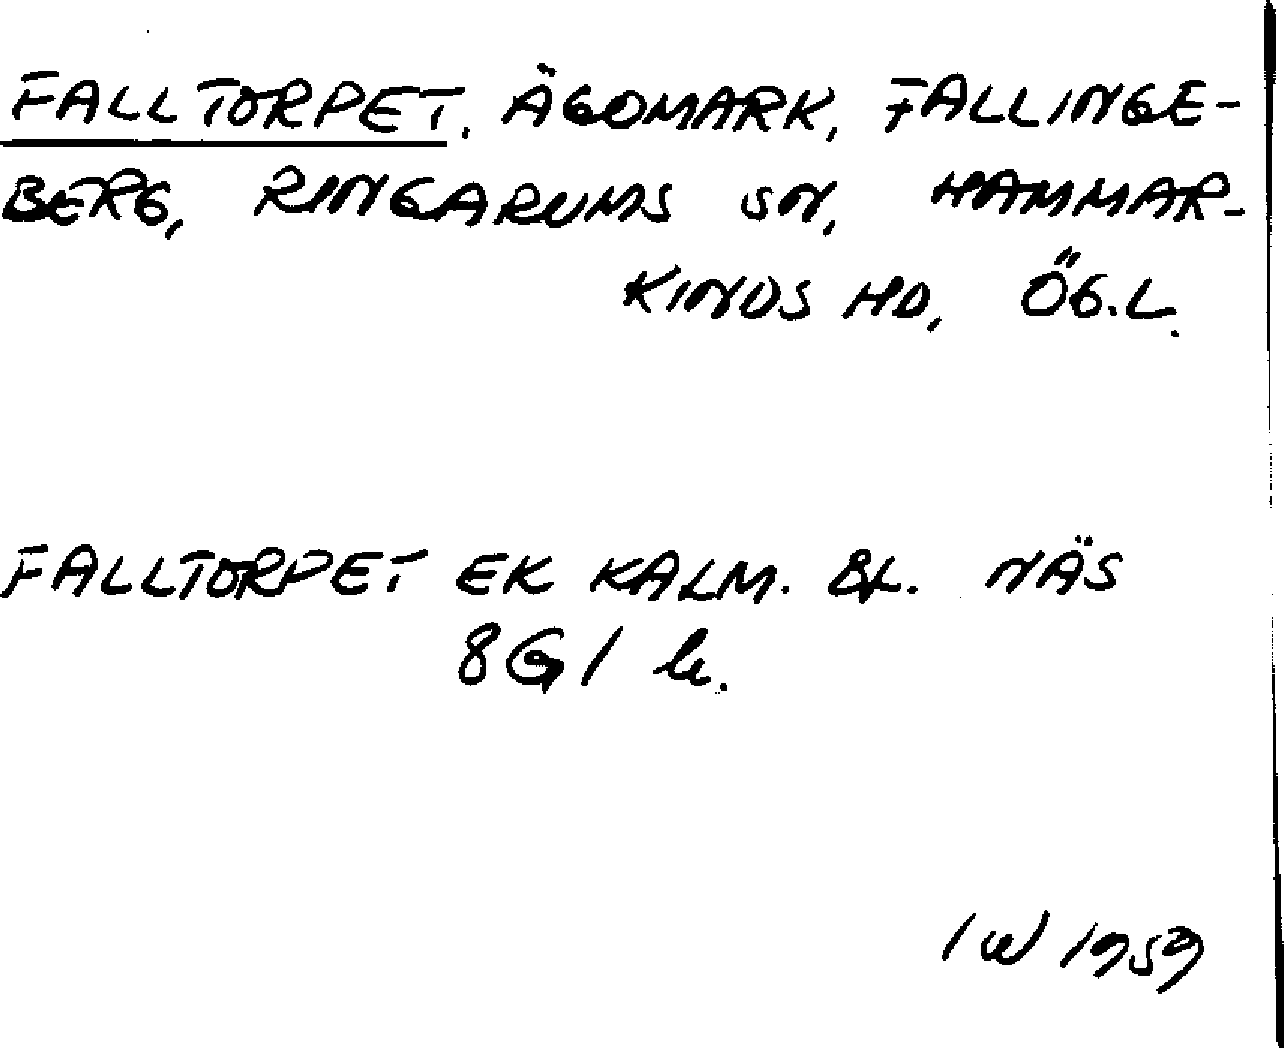 FALLTORPET. ÄGOMARK, FALLINGE-
BERG, RINGARUMS SN, HAMMAR-
KINDS HD, ÖG.L.
FALLTORPET EK KALM. BL. NÄS
8G1
IW 1959